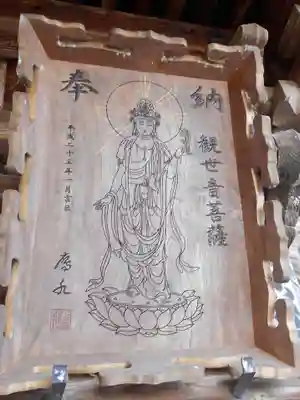 奉
納
観世音菩薩
平成二十五年一月吉日